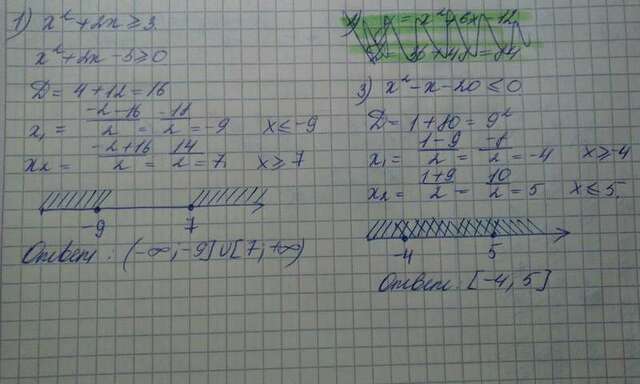 1) x²+2x≥3.
x²+2x-3≥0
D=4+12=16
x₁ = (-2-16)/2 = -18/2 = -9 x≤-9
x₂ = (-2+16)/2 = 14/2 = 7; x≥7
-9 7
Ответ: (-∞;-9]∪[7;+∞)
3) x²-x-20≤0.
D=1+80=9²
x₁ = (1-9)/2 = -8/2 = -4 x≥-4
x₂ = (1+9)/2 = 10/2 = 5 x≤5.
-4 5
Ответ: [-4;5]